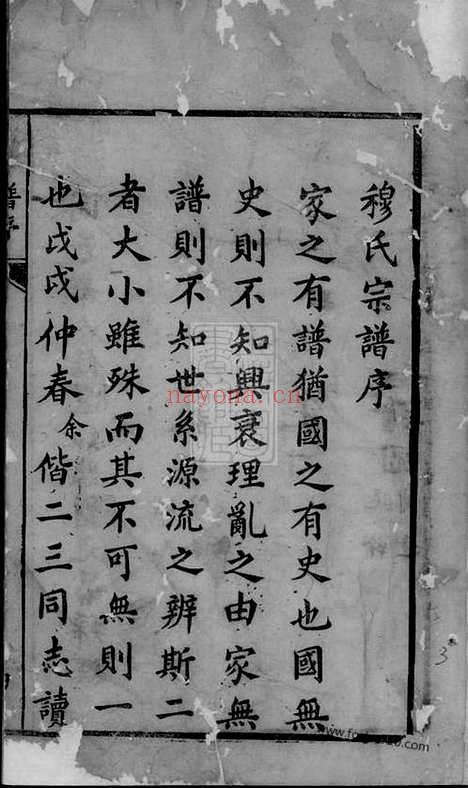 穆氏宗譜序
家之有譜猶國之有史也國無
史則不知興衰理亂之由家無
譜則不知世系源流之辨斯二
者大小雖殊而其不可無則一
也戊戌仲春余偕二三同志讀
譜序
nayona.cn
3